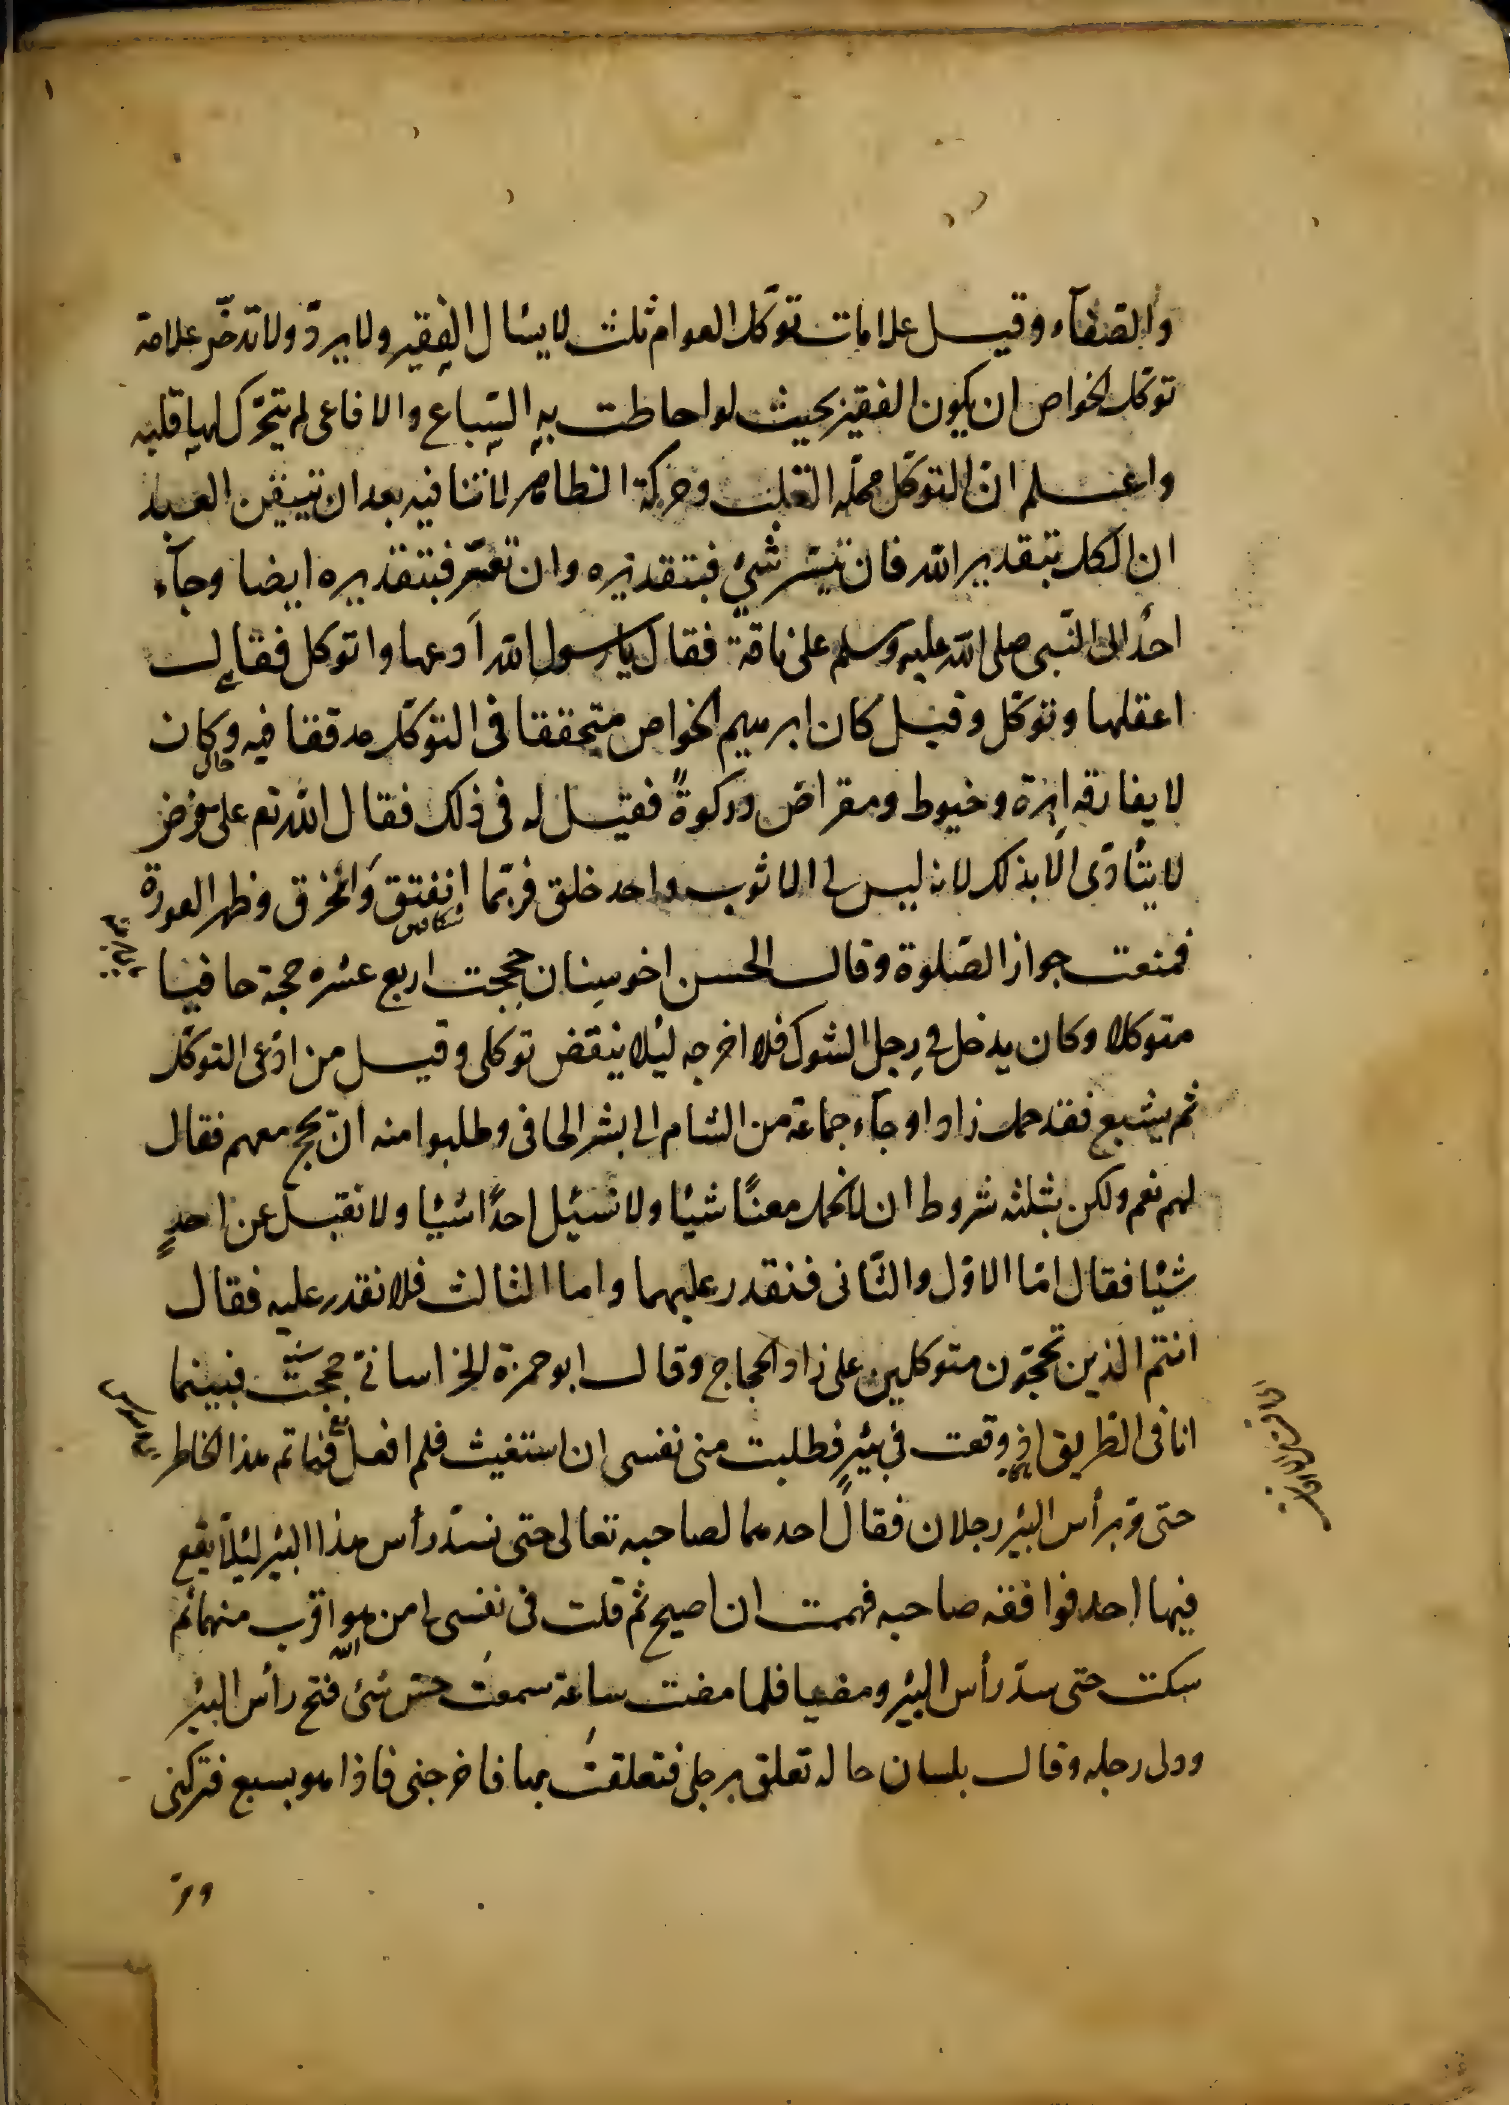 والصفآء وقيل علامات توكل العوام ثلث لا يسال الفقير ولا يردّ ولا تدخّر علامة
توكل الخواص ان يكون الفقير بحيث لو احاطت به السّباع والافاعى لم يتحرّك لها قلبه
واعلم انّ التوكّل محلّه القلب وحركة الظاهر لا تنافيه بعد ان تيقن العبد
ان الكل بتقدير الله فان تيسّر شئ فبتقديره وان تعسّر فبتقديره ايضا وجآء
احدٌ الى النّبى صلى الله عليه وسلم على ناقة فقال يا رسول الله اَدعها واتوكل فقال
اعقلها وتوكّل وقيل كان ابرهيم الخواص متحققا فى التوكّل مدققا فيه وكان
لا يفارقه اِبرة وخيوط ومقراض وركوةٌ فقيل له فى ذلك فقال الله تع على فرض
لا يتأدّى الّا بذلك لانه ليس لى الا ثوب واحد خلق فربّما انفتق وَانخرق وظهر العورة
فمنعت جواز الصّلوة وقال الحسن اخو سِنان حججت اربع عشره حجة حافيا
متوكلا وكان يدخل فى رِجلى الشوك فلا اخرجه ليُلا ينقض توكلى وقيل من ادّعى التوكّل
ثم يشبع فقد حمل زادا وجآء جماعة من الشام الى بشر الحافى وطلبوا منه انّ يحج معهم فقال
لهم نعم ولكن بثلثه شروط ان لا نحمل معنًا شيًا ولا نسيُل احدًا شيُا ولا نقبل عن احدٍ
شيًا فقال امّا الاوّل والثّانى فنقدر عليهما واما الثالث فلا نقدر عليه فقال
انتم الذين تحجّون متوكلين على زاد الحجاج وقال ابو حمزة الخراسانى حججت سنة فبينما
انا فى الطريق اذ وقعت فى بئرٍ فطلبت منى نفسى ان استغيث فلم افعل فما تم هذا الخاطر
حتى مرّ برأس البئر رجلان فقال احدهما لصاحبه تعالى حتى نسدّ رأس هذا البئر ليُلا يقع
فيها احد فوافقه صاحبه فهمت ان اصيح ثم قلت فى نفسى امن هو اقرب منهما ثم
سكت حتى سدّ رأس البئر ومضيا فلما مضت ساعة سمعت حسّ شئ فتح رأس البئر
ودلى رجله وقال بلسان حاله تعلق برجلى فتعلقتُ بها فاخرجنى فاذا هو بسبع فتركنى
ومرّ